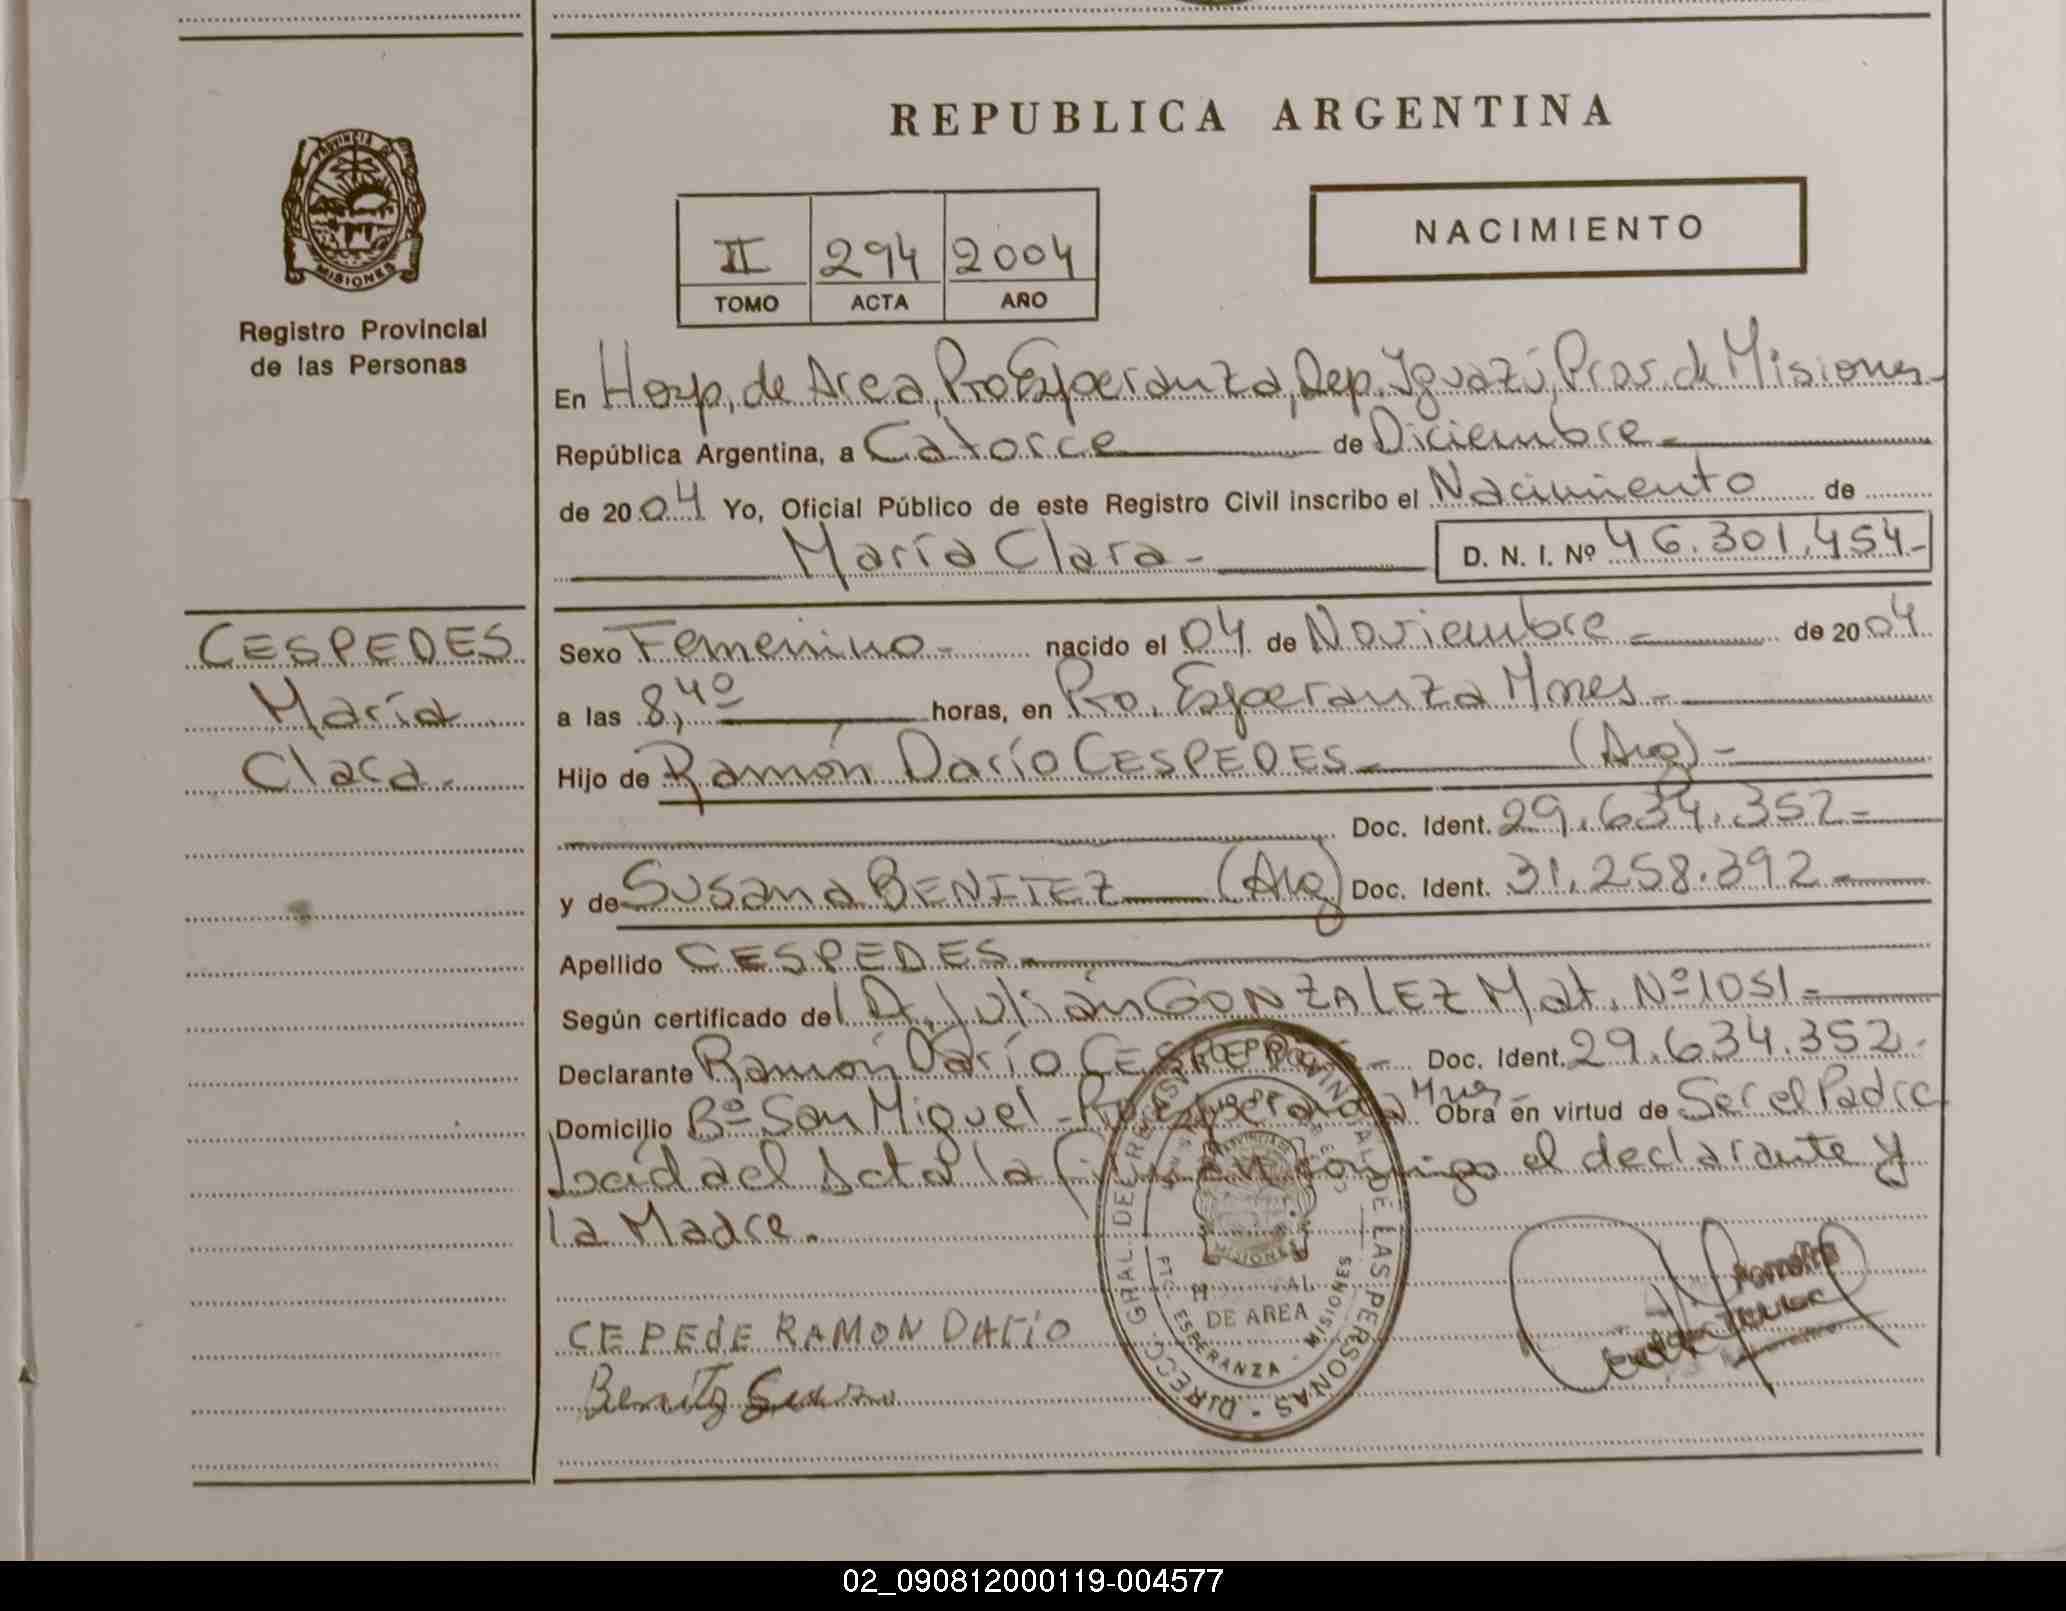 REPUBLICA ARGENTINA
PROVINCIA DE
MISIONES
Registro Provincial
de las Personas
II 294 2004
TOMO ACTA AÑO
NACIMIENTO
En Hosp, de Area, Pto Esperanza, Dep. Iguazú, Prov. de Misiones-
República Argentina, a Catorce de Diciembre-
de 2004 Yo, Oficial Público de este Registro Civil inscribo el Nacimiento de
María Clara- D. N. I. Nº 46.301.454-
CESPEDES
María
Clara.
Sexo Femenino- nacido el 04 de Noviembre- de 2004
a las 8,40 horas, en Pto. Esperanza Mnes-
Hijo de Ramón Darío CESPEDES- (Arg)-
Doc. Ident. 29.634.352-
y de Susana BENITEZ (Arg) Doc. Ident. 31.258.392-
Apellido CESPEDES-
Según certificado del Dr. Julián GONZALEZ Mat. Nº 1051-
Declarante Ramón Darío CESPEDES- Doc. Ident. 29.634.352-
Domicilio Bº San Miguel-Pto Esperanza Mnes- Obra en virtud de Ser el Padre
Leída el Acta la firman conmigo el declarante y
la Madre.
CEPEdE RAMON DARÍO
Benitez Susana
DIRECC. GRAL. DEL REGISTRO PROVINCIAL DE LAS PERSONAS
MISIONES
DE AREA
PTO. ESPERANZA - MISIONES
02_090812000119-004577